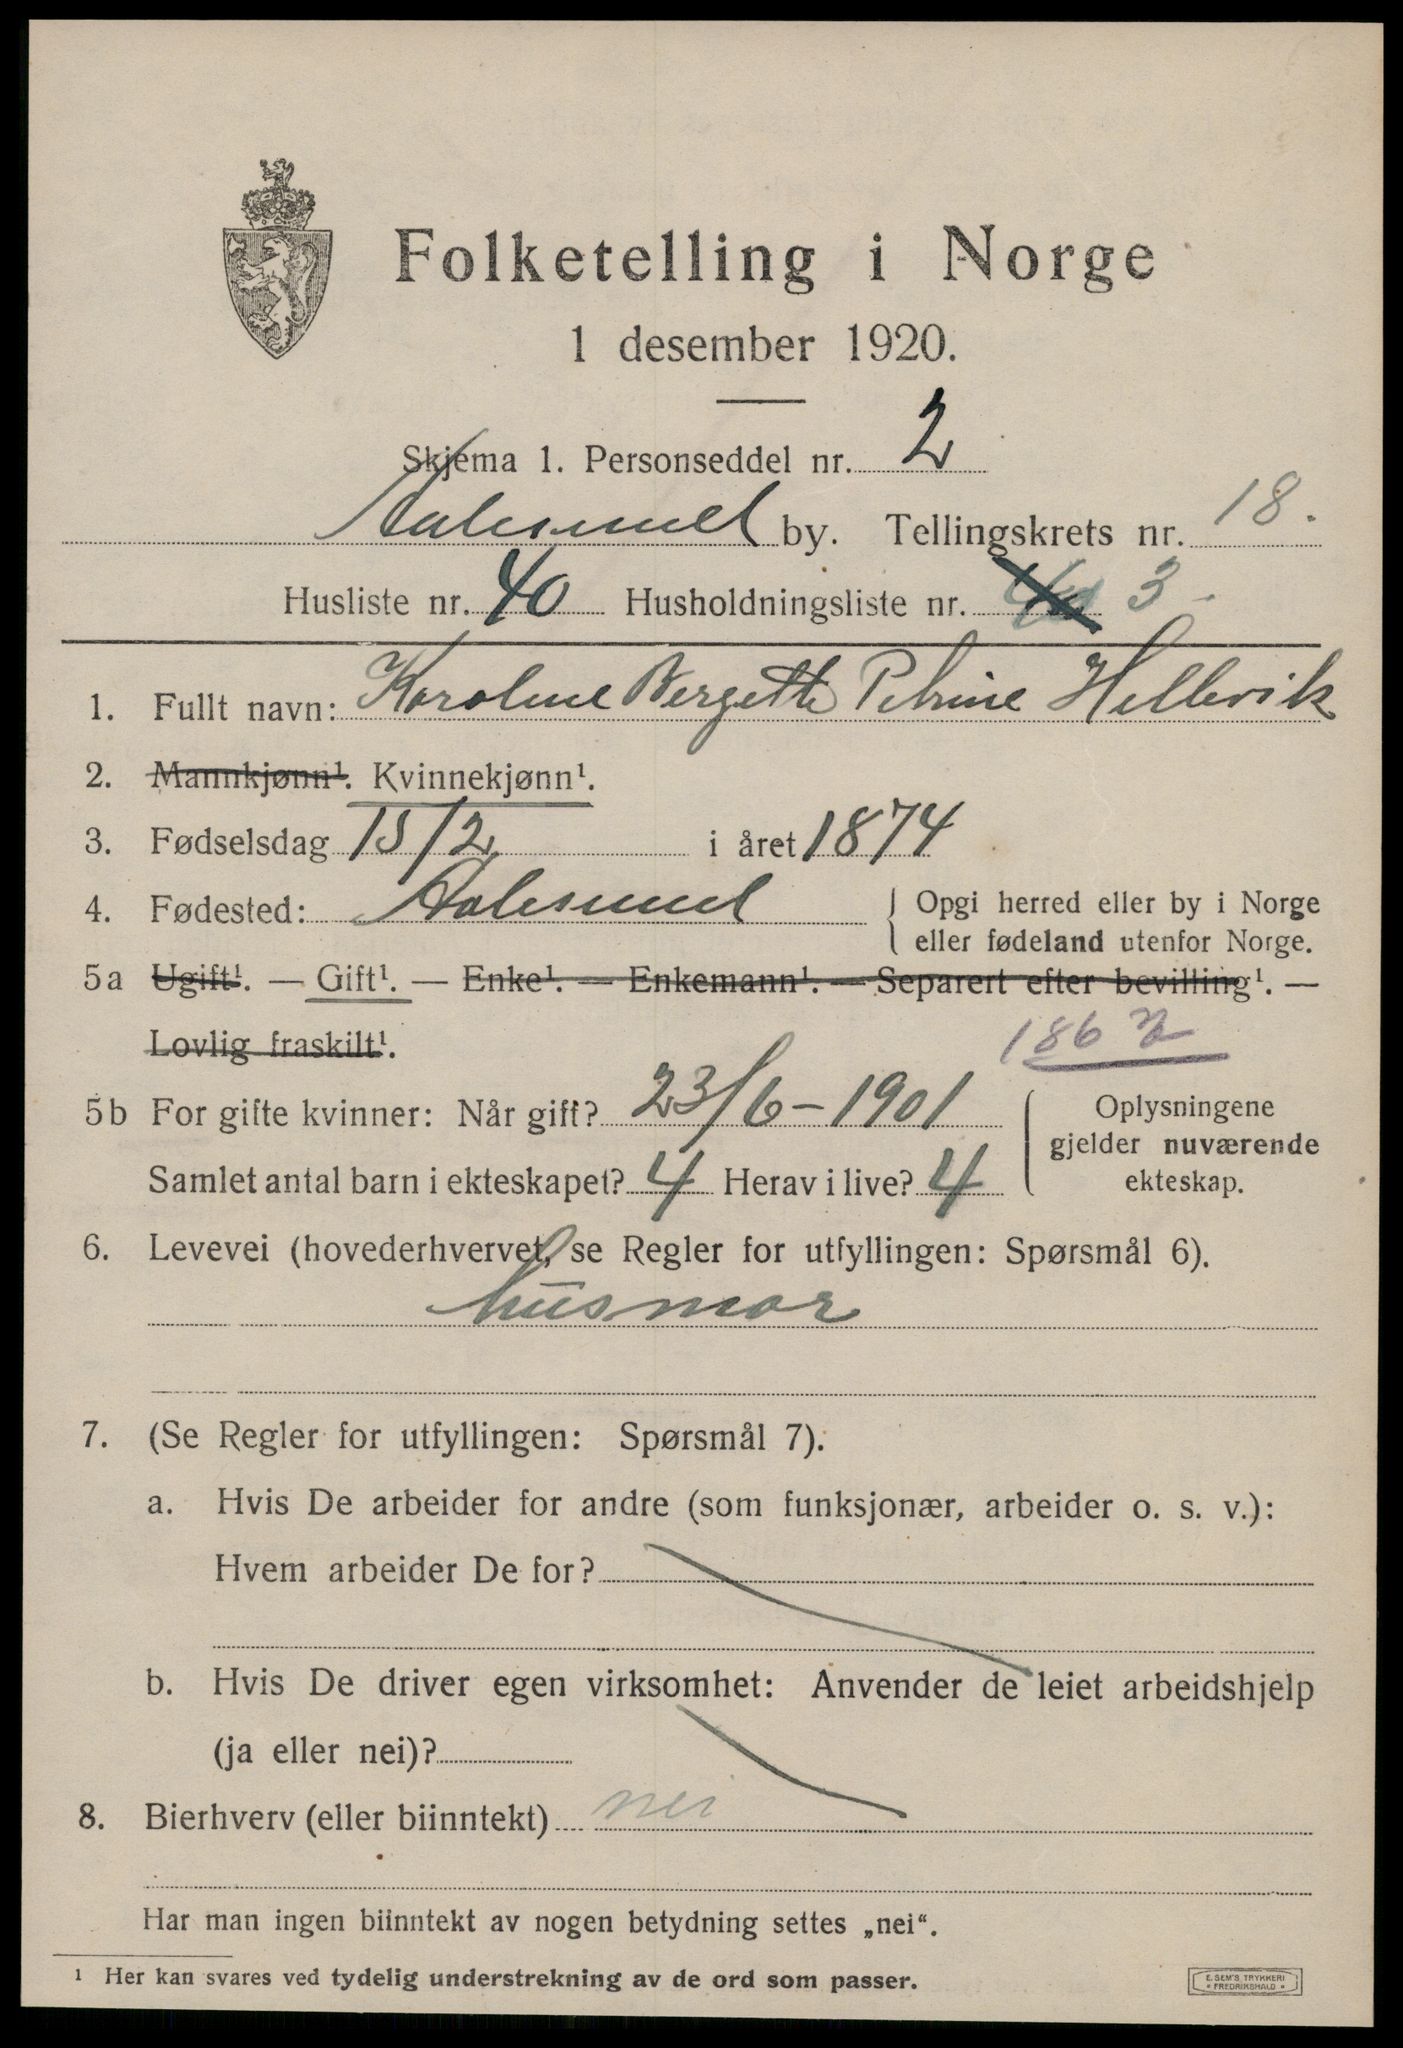 Folketelling i Norge
1 desember 1920.
Skjema 1. Personseddel nr. 2
Aalesund by. Tellingskrets nr. 18.
Husliste nr. 40 Husholdningsliste nr. 40 3
1. Fullt navn: Karoline Bergette Petrine Hellevik
2. Mannkjønn¹. Kvinnekjønn¹.
3. Fødselsdag 15/2 i året 1874
4. Fødested: Aalesund { Opgi herred eller by i Norge
eller fødeland utenfor Norge.
5a Ugift¹. — Gift¹. — Enke¹. — Enkemann¹. — Separert efter bevilling¹. —
Lovlig fraskilt¹.
186
5b For gifte kvinner: Når gift? 23/6-1901 { Oplysningene
gjelder nuværende
Samlet antal barn i ekteskapet? 4 Herav i live? 4 ekteskap.
6. Levevei (hovederhvervet, se Regler for utfyllingen: Spørsmål 6).
husmor
7. (Se Regler for utfyllingen: Spørsmål 7).
a. Hvis De arbeider for andre (som funksjonær, arbeider o. s. v.):
Hvem arbeider De for?
b. Hvis De driver egen virksomhet: Anvender de leiet arbeidshjelp
(ja eller nei)?
8. Bierhverv (eller biinntekt) nei
Har man ingen biinntekt av nogen betydning settes „nei“.
¹ Her kan svares ved tydelig understrekning av de ord som passer.
E. SEM'S TRYKKERI
FREDRIKSHALD